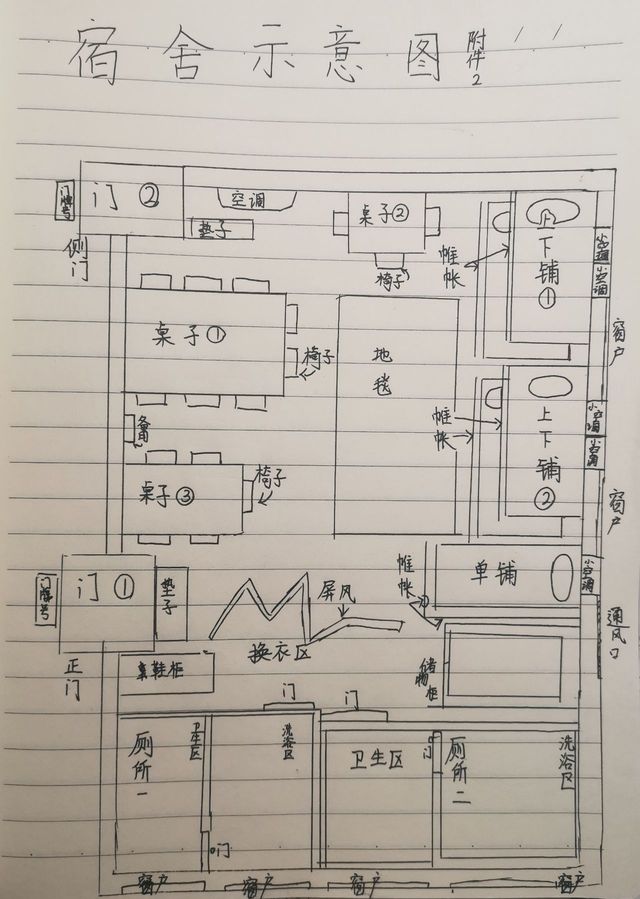 宿舍示意图
附件2
门牌号
门②
侧门
空调
垫子
桌子②
椅子
帷帐
上下铺①
小空调
小空调
窗户
桌子①
椅子
地毯
帷帐
上下铺②
小空调
小空调
窗户
备用
桌子③
椅子
门牌号
门①
正门
垫子
屏风
换衣区
帷帐
单铺
小空调
通风口
储物柜
鞋柜
门
门
厕所一
卫生区
洗浴区
门
卫生区
门
厕所二
洗浴区
窗户
窗户
窗户
窗户